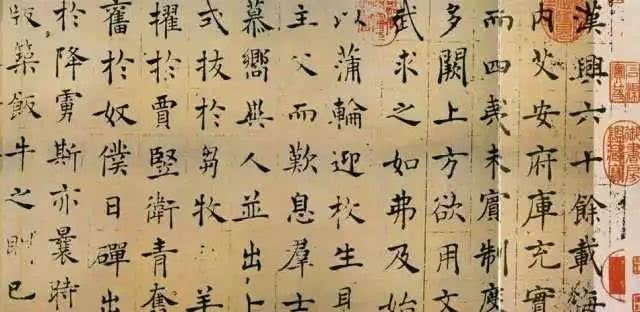 漢興六十餘載海
內艾安府庫充實
而四夷未賓制度
多闕上方欲用文
武求之如弗及始
以蒲輪迎枚生見
主父而歎息羣士
慕嚮異人並出卜
式拔於芻牧羊
擢於賈豎衛青奮
奮於奴僕日磾出
於降虜斯亦曩時
版築飯牛之已